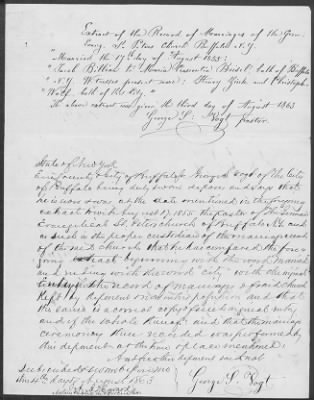 Extract of the Record of Marriages of the German
Evang. St. Peters Church Buffalo N.Y.
"Married the 17th day of August 1855:
"Jacob to Maria Bristol, both of Buffalo
"N.Y. Witnesses present were: Henry Zink and Christoph
"Wolf, both of the City."
The above extract was given the third day of August 1863
George S. Vogt pastor.
State of New York
Erie County City of Buffalo George Vogt of the City
of Buffalo being duly sworn deposes and says that
he is now was at the date mentioned in the foregoing
extract August 17, 1855, the pastor of the German
Evangelical St. Peters church of Buffalo and
as such is the proper custodian of the marriage records
of the said Church that he has compared the fore
going extract beginning with the word Married
and ending with the word "City" with the original
Entry of the record of marriages of said church
kept by deponent in his possession and that
the same is a correct copy of such original entry
and of the whole thereof and that the marriage
ceremony therein recorded was performed by
this deponent at the time & place mentioned
And further deponent saith not
Subscribed & Sworn before me
this 4th day of August 1863
George S. Vogt